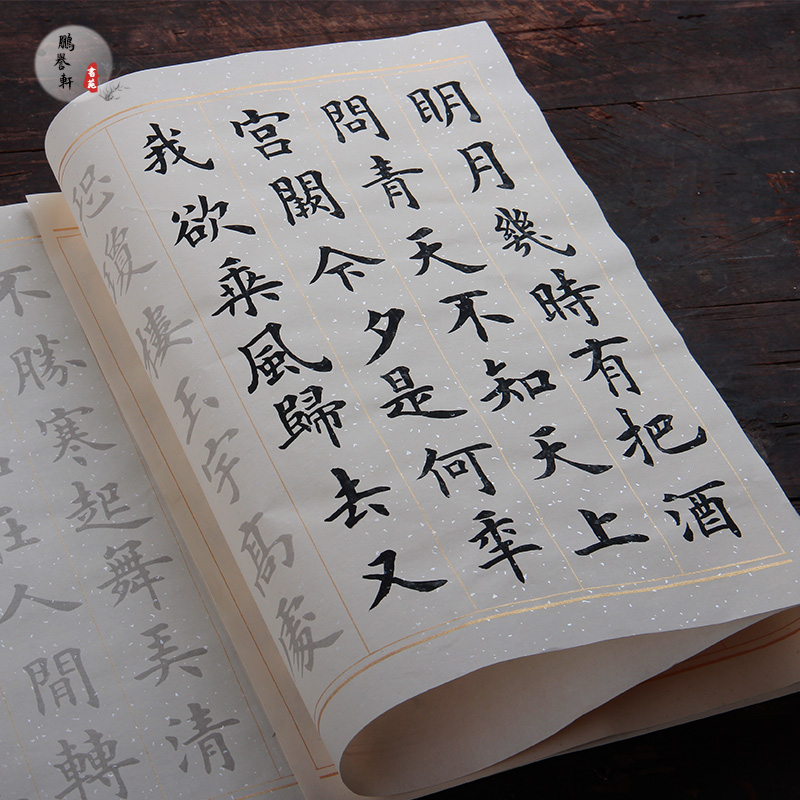 鵬譽軒
書苑
明月幾時有把酒
問青天不知天上
宮闕今夕是何年
我欲乘風歸去又
恐瓊樓玉宇高處
不勝寒起舞弄清
在人間轉